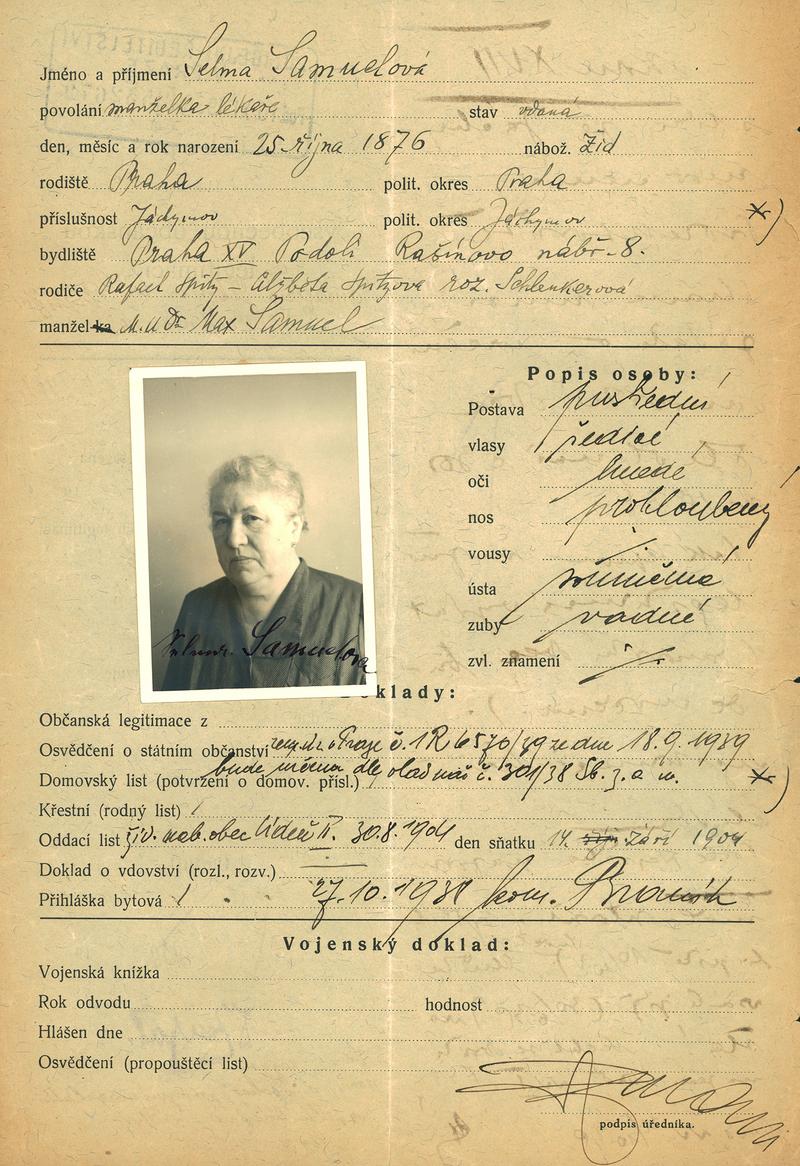 Jméno a příjmení Selma Samuelová
povolání manželka lékaře stav vdaná
den, měsíc a rok narození 25. října 1876 nábož. Žid
rodiště Praha polit. okres Praha
příslušnost Jáchymov polit. okres Jáchymov
bydliště Praha XV Podolí Rašínovo nábř. 8.
rodiče Rafael Spitz – Alžběta Spitzova roz. Schlenkerová
manžel-ka M.U.Dr. Max Samuel
Popis osoby:
Postava prostřední
vlasy šedivé
oči hnědé
nos prohloubený
vousy /.
ústa souměrná
zuby vadné
zvl. znamení /.
Samuelova
Doklady:
Občanská legitimace z
Osvědčení o státním občanství v Praze č. 1R 6570/39 ze dne 18.9.1939
bude měněna dle vlád. nař. č. 301/38 Sb. z. a n.
Domovský list (potvrzení o domov. přísl.)
Křestní (rodný list) /
Oddací list žid. nab. obec Vídeň II. 30.8.1904 den sňatku 14. září 1904
Doklad o vdovství (rozl., rozv.)
Přihláška bytová / 27.10.1938 kom. Braník
Vojenský doklad:
Vojenská knížka
Rok odvodu hodnost
Hlášen dne
Osvědčení (propouštěcí list)
podpis úředníka.